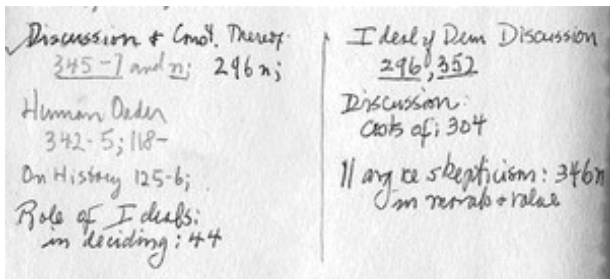 Discussion & Const. Thereof
345-7 and n; 296n;
Human Order
342-5; 118-
On History 125-6;
Role of Ideals:
in deciding: 44
Ideal of Dem Discussion
296, 352
Discussion:
Costs of; 304
|| arg re skepticism: 346n
in morals & value